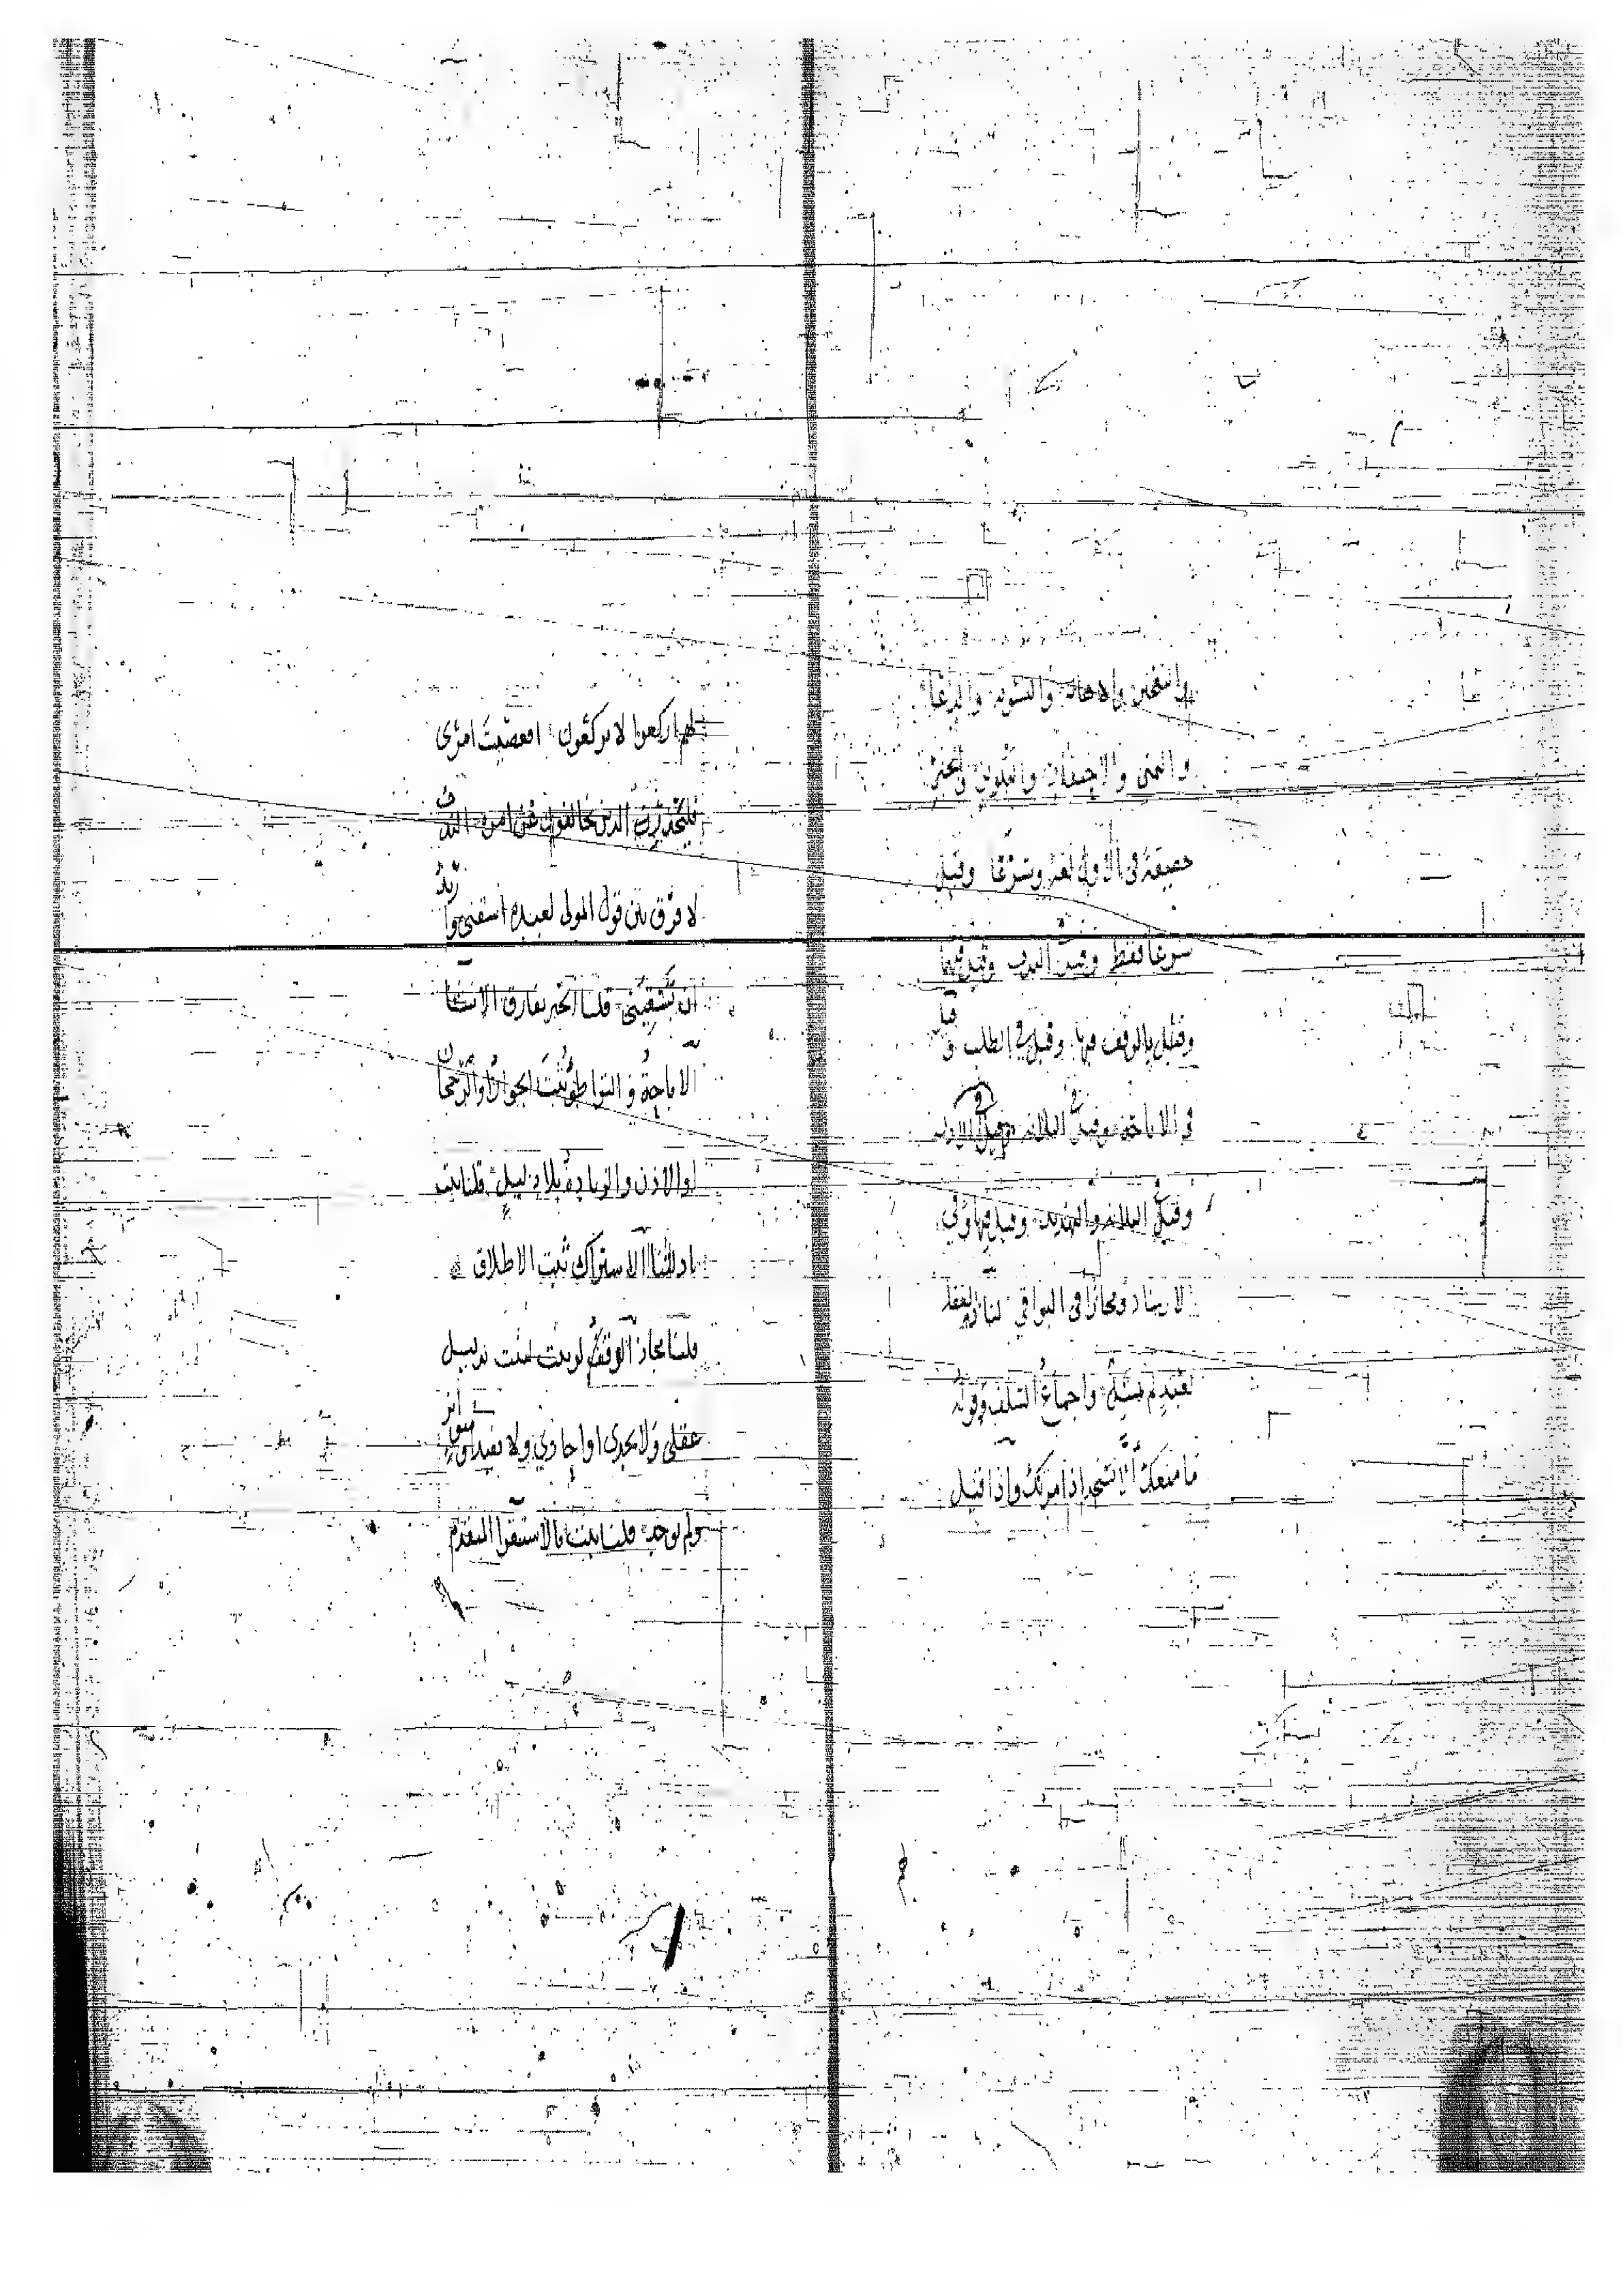 والتسخير والاهانة والتسوية والدعا
والتمنى والاحتقار والتكوين والخبر
حقيقة فى الاول لغة وشرعا وقيل
شرعا فقط وقيل الندب وقيل فيهما
وقيل بالوقف فيها وقيل فى الطلب وقيل
فى الاباحة وقيل الثلاثة
وقيل الثلاثة والتهديد وقيل فيها وفي
الارشاد ومجازا فى البواقي لنا ذم العقلا
لعبد لم يمتثل واجماع السلف وقوله
ما منعك الا تسجد اذ امرتك واذا قيل
لهم اركعوا لا يركعون افعصيت امرى
فليحذر الذين يخالفون عن امره
لا فرق بين قول المولى لعبده اسقنى واريد
ان تسقينى قلنا الخبر يفارق الانشا
الاباحة والتواطؤ ثبت الجواز او الرجحان
او الاذن والزيادة بلا دليل قلنا ثبت
بادلتنا الاشتراك ثبت الاطلاق
قلنا مجاز الوقف لو ثبت لثبت بدليل
عقلى ولا يجدى او احادي ولا يفيد او متواتر
ولم يوجد قلنا ثبت بالاستقرا المتقدم